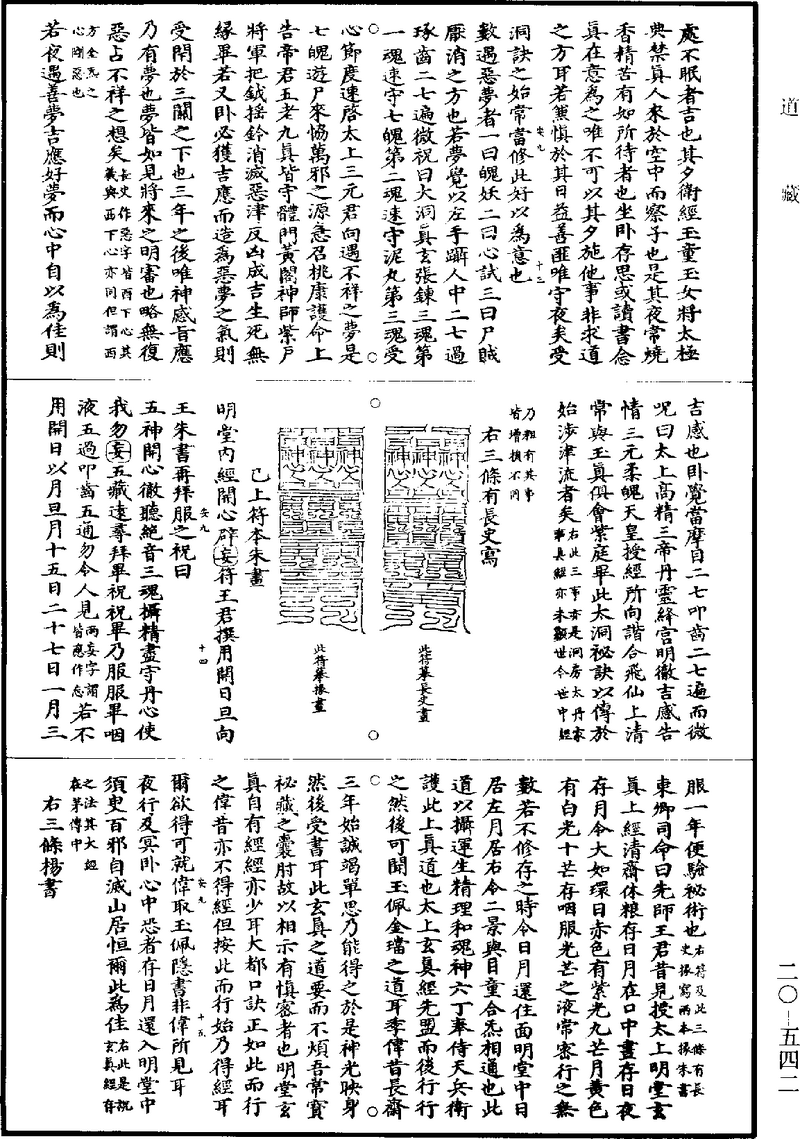 道藏
處不眠者吉也其夕衛經玉童玉女將太極
典禁真人來於空中而察子也是其夜常燒
香精苦有如所待者也坐卧存思或讀書念
真在意為之唯不可以其夕施他事非求道
之方耳若兼慎於其日益善匪唯守夜矣受
洞訣之始常當修此好以為意也
安九
十三
數遇惡夢者一曰魄妖二曰心試三曰尸賊
厭消之方也若夢覺以左手躡人中二七過
琢齒二七遍微祝曰大洞真玄張鍊三魂第
一魂速守七魄第二魂速守泥丸第三魂受
心節度速啓太上三元君向遇不祥之夢是
七魄遊尸來協萬邪之源急召桃康護命上
告帝君五老九真皆守體門黃閣神師紫戶
將軍把鉞摇鈴消滅惡津反凶成吉生死無
緣畢若又卧必獲吉應而造為惡夢之氣則
受閉於三關之下也三年之後唯神感旨應
乃有夢也夢皆如見將來之明審也略無復
惡占不祥之想矣長史作惡字皆酉下心其義與西下心亦同但謂西
方金炁之心剛惡也
若夜遇善夢吉應好夢而心中自以為佳則
吉感也卧覺當摩目二七叩齒二七遍而微
咒曰太上高精三帝丹靈絳宮明徹吉感告
情三元柔魄天皇授經所向諧合飛仙上清
常與玉真俱會紫庭畢此太洞祕訣以傳於
始涉津流者矣右此三事亦是洞房太丹家事真經亦未顯世今世中經
乃粗有其事皆增損不同
右三條有長史寫
此符摹長史畫
此符摹掾畫
已上符本朱畫
明堂內經開心辟妄符王君撰用開日旦向
安九
十四
王朱書再拜服之祝曰
五神開心徹聽絕音三魂攝精盡守丹心使
我勿妄五藏遠尋拜畢祝祝畢乃服服畢咽
液五過叩齒五通勿令人見兩妄字謂皆應作忘若不
用開日以月旦月十五日二十七日一月三
服一年便驗祕術也右符及此三條有長史掾寫兩本掾朱書
東卿司命曰先師王君昔見授太上明堂玄
真上經清齋休粮存日月在口中晝存日夜
存月令大如環日赤色有紫光九芒月黃色
有白光十芒存咽服光芒之液常密行之無
數若不修存之時令日月還住面明堂中日
居左月居右令二景與目童合炁相通也此
道以攝運生精理和魂神六丁奉侍天兵衛
護此上真道也太上玄真經先盟而後行行
之然後可聞玉佩金璫之道耳季偉昔長齋
三年始誠竭單思乃能得之於是神光映身
然後受書耳此玄真之道要而不煩吾常寶
祕藏之囊肘故以相示有慎密者也明堂玄
真自有經經亦少耳大都口訣正如此而行
之偉昔亦不得經但按此而行始乃得經耳
安九
十五
爾欲得可就偉取玉佩隱書非偉所見耳
夜行及冥卧心中恐者存日月還入明堂中
須臾百邪自滅山居恒爾此為佳右此是說玄真經存
之法其大經在茅傳中
右三條楊書
二〇—五四二